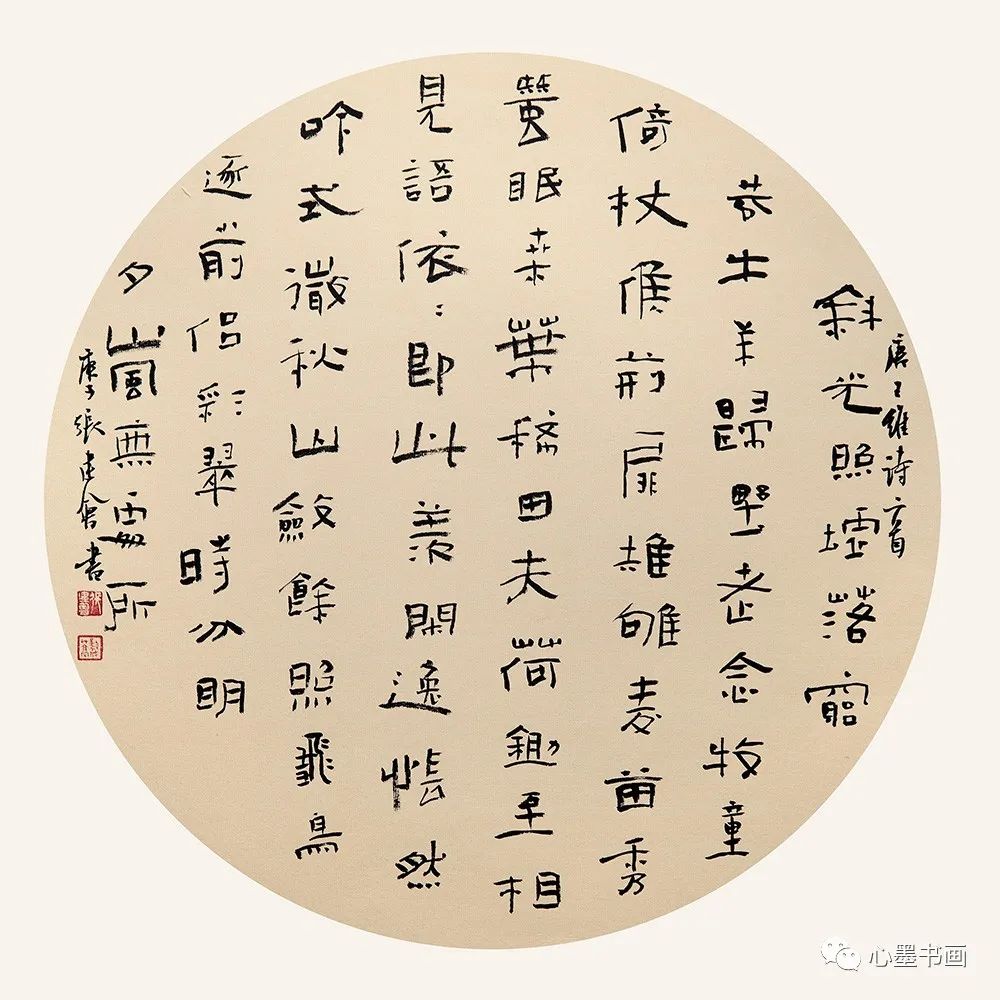 唐王維诗二首
斜光照墟落窮
巷牛羊歸野老念牧童
倚杖候荊扉雉雊麦苗秀
蠶眠桒葉稀田夫荷鋤至相
見語依〻即此羨閑逸悵然
吟式微秋山斂餘照飛鳥
逐前侣彩〻翠時分明
夕嵐無處所
庚子張建會书
心墨书画